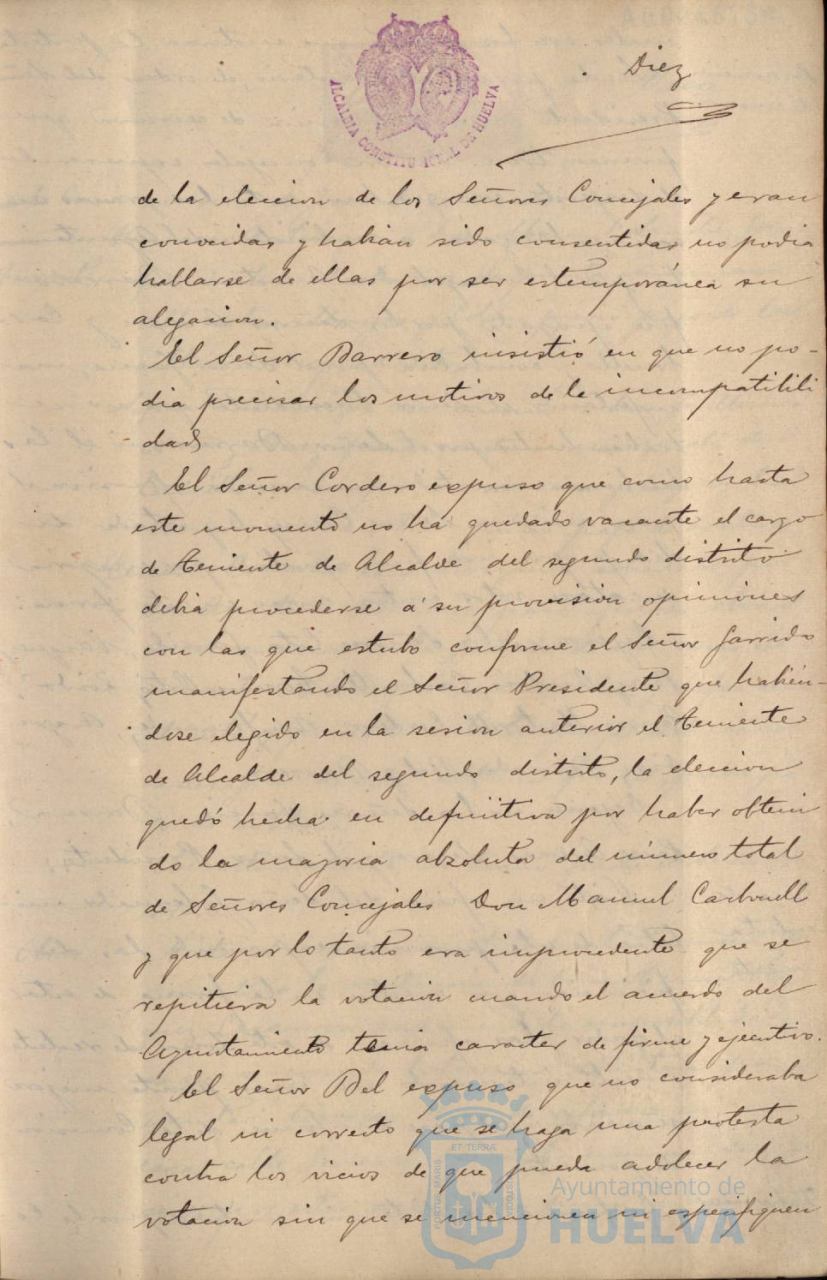 Diez
ALCALDIA CONSTITUCIONAL DE HUELVA
de la eleccion de los Señores Concejales y eran
conocidas y habian sido consentidas no podia
hallarse de ellas por ser estemporánea su
alegacion.
El Señor Barrero insistió en que no po-
dia precisar los motivos de la incompatibili
dad
El Señor Cordero expuso que como hasta
este momento no ha quedado vacante el cargo
de Teniente de Alcalde del segundo distrito
debia procederse á su provision opiniones
con las que estubo conforme el Señor Garrido
manifestando el Señor Presidente que habién-
dose elegido en la sesion anterior el Teniente
de Alcalde del segundo distrito, la eleccion
quedó hecha en definitiva por haber obteni
do la mayoria absoluta del número total
de Señores Concejales Don Manuel Carbonell
y que por lo tanto era improcedente que se
repitiera la votacion cuando el acuerdo del
Ayuntamiento tenia caracter de firme y ejecutivo.
El Señor Del expuso que no consideraba
legal ni correcto que se haga una protesta
contra los vicios de que pueda adolecer la
votacion sin que se mencionen ni especifiquen
ET TERRAE
Ayuntamiento de
HUELVA